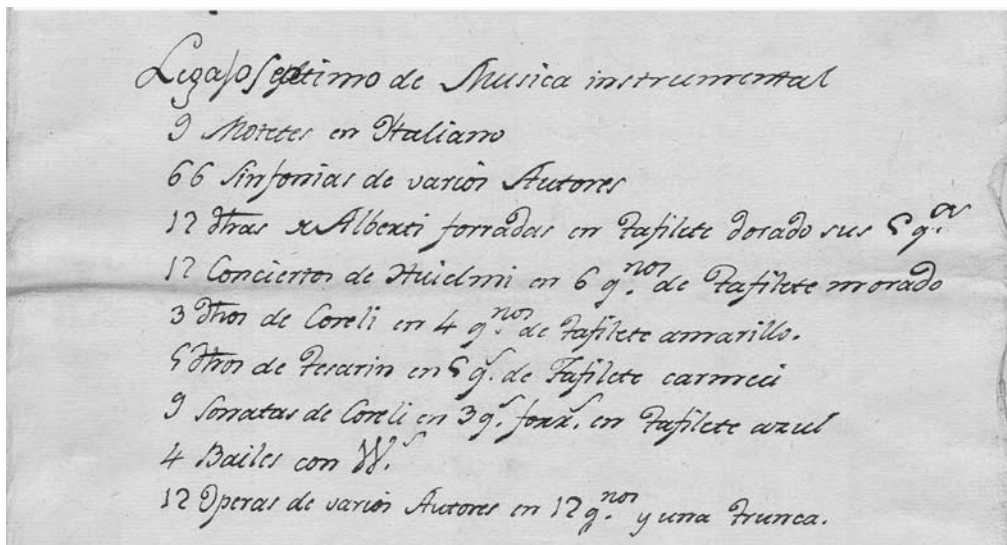 Legajo Septimo de Musica instrumental
9 Motetes en Italiano
66 Sinfonias de varios Autores
12 dhas de Alberti forradas en tafilete dorado sus 5 q.os
12 Conciertos de Huielmi en 6 q.nos de tafilete morado
3 dhos de Coreli en 4 q.nos de tafilete amarillo.
5 dhos de Tesarin en 5 q.s de Tafilete carmeci
9 Sonatas de Coreli en 3 q.s forr.s en tafilete azul
4 Bailes con
12 Operas de varios Autores en 12 q.nos y una trunca.